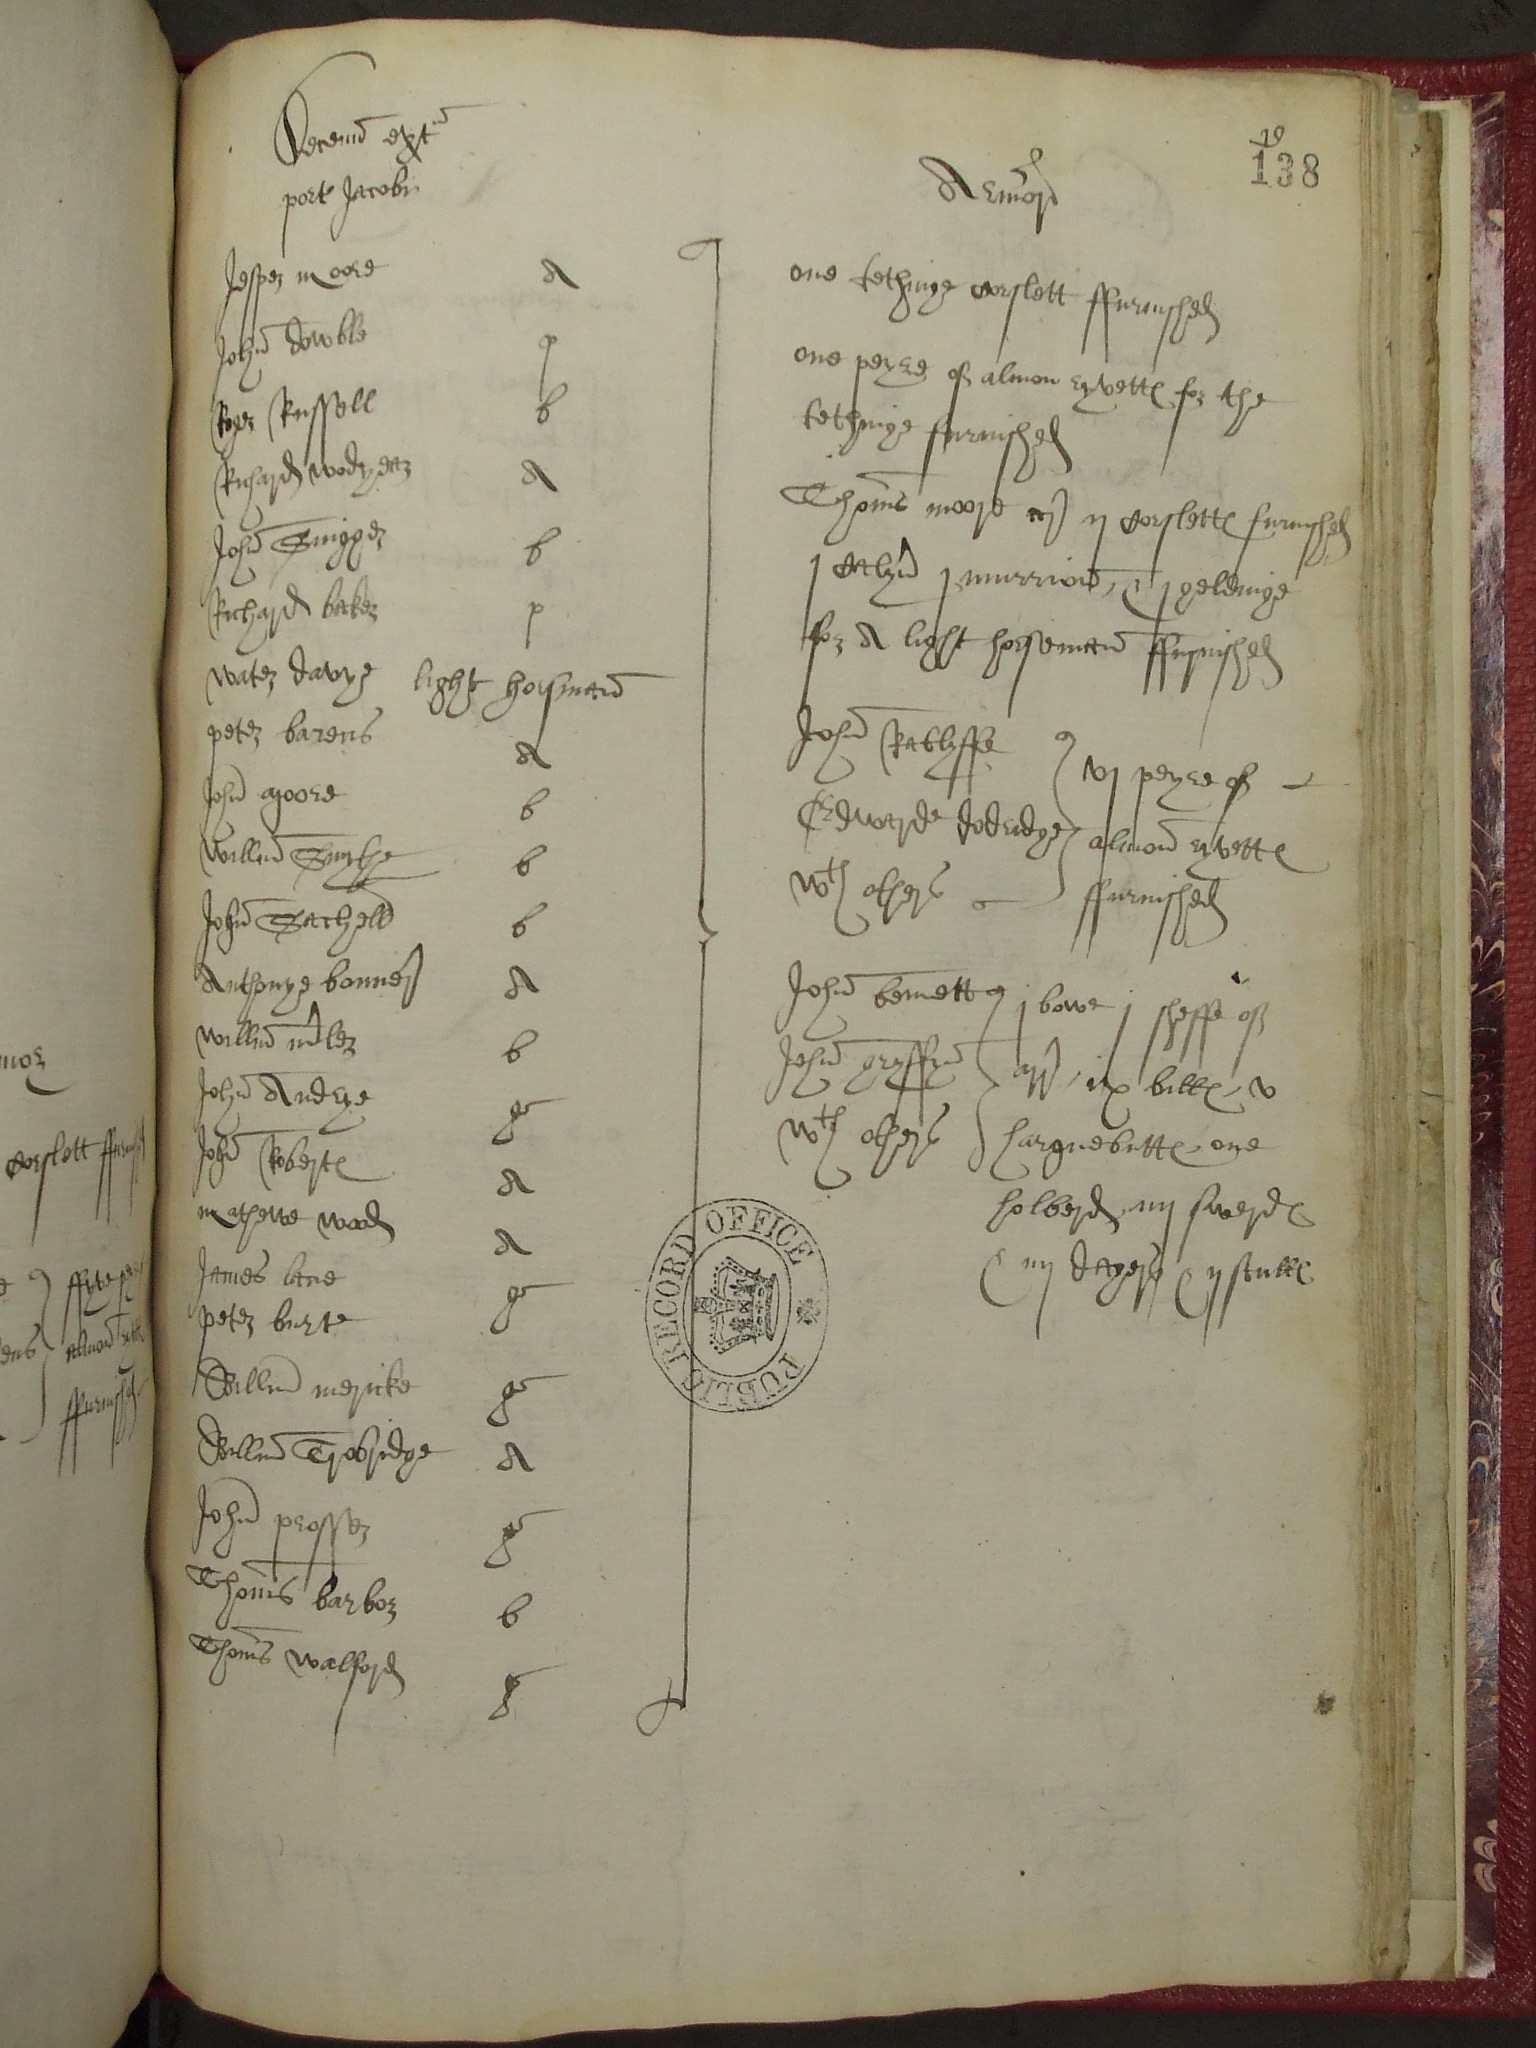 Decenna extra
porte Jacobi
138
Armor
Jesper moore A
John dowble p
Roger Russell b
Richard wodyeer A
John Snigger b
Richard baker p
water davye light horsman
peter barens A
John Moore b
Willm Smythe b
John Satchell b
Anthonye bonner A
willm miler b
John Andrye g
John Roberte A
mathewe wood A
James lane g
peter burte
Willm mericke g
Willm Trobridge A
John prosser g
Thoms barbor b
Thoms walford g
one tethinge corslett ffurnished
one peyre of almon ryvette for the
tethinge furnished
Thoms moore ar ij corslette furnished
j calyu j murrion & j geldinge
for A light horseman ffurnished
John Ratlyffe
Edwarde dodridge
wth others
vj peyre of
almon ryvette
ffurnished
John bennett
John gryffyn
wth others
j bowe j sheffe of
arr ix bille v
harquebutte one
holberd iiij swerde
& iij dagers & ij sculle
corslett ffurnish
PUBLIC RECORD OFFICE